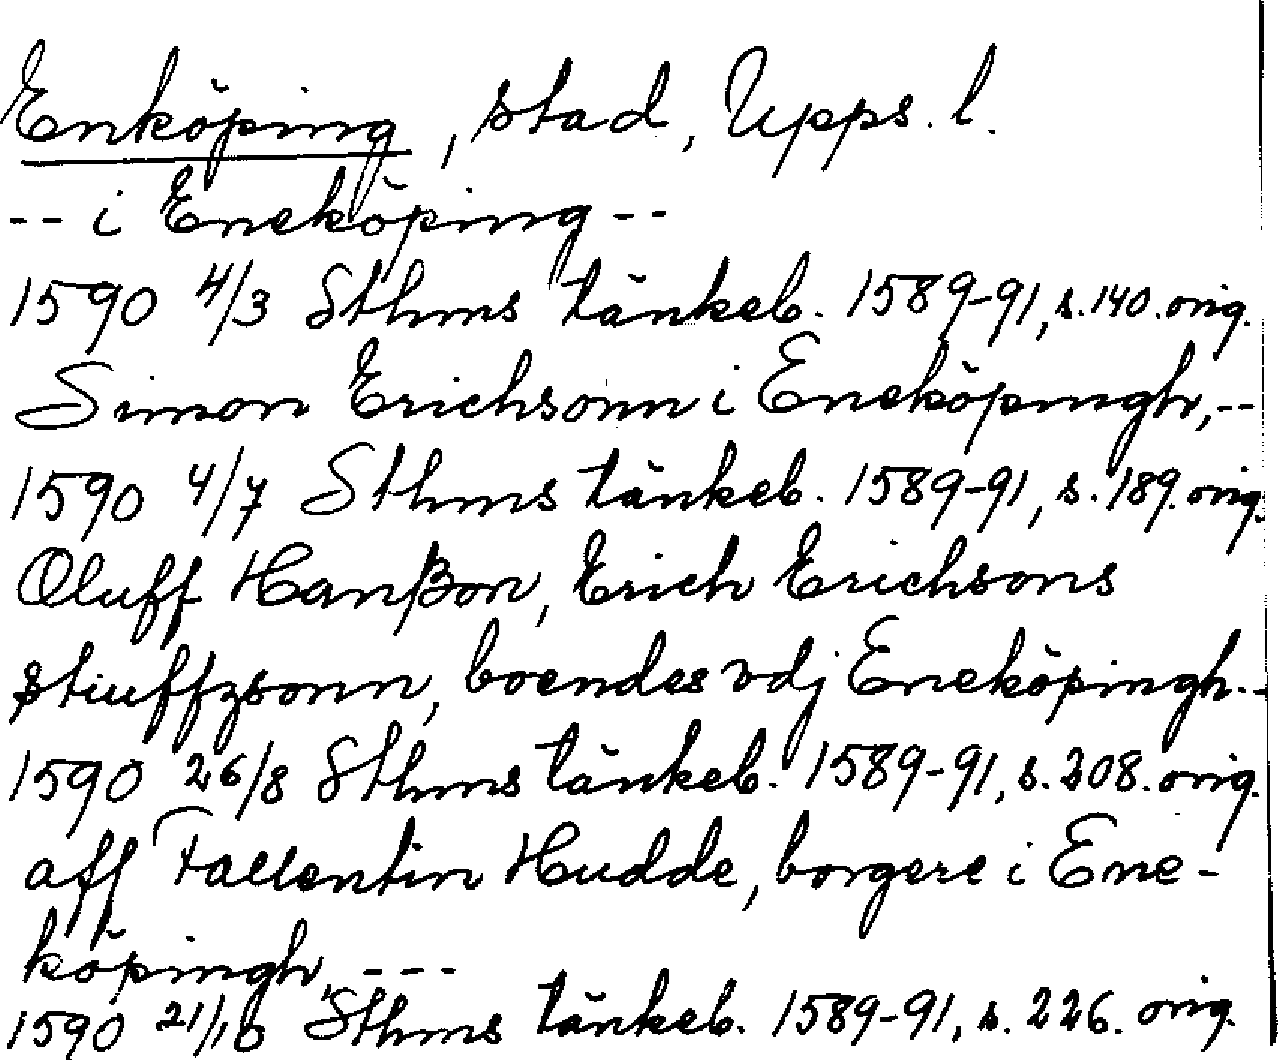 Enköping, stad, Upps. l.
-- i Eneköping --
1590 4/3 Sthms tänkeb. 1589-91, s. 140. orig.
Simon Erichsonn i Eneköpingh, --
1590 4/7 Sthms tänkeb. 1589-91, s. 189. orig.
Oluff Hanßon, Erich Erichsons
stiuffzsonn, boendes vdj Eneköpingh --
1590 26/8 Sthms tänkeb. 1589-91, s. 208. orig.
aff Fallentin Hudde, borgere i Ene-
köpingh, ---
1590 21/10 Sthms tänkeb. 1589-91, s. 226. orig.